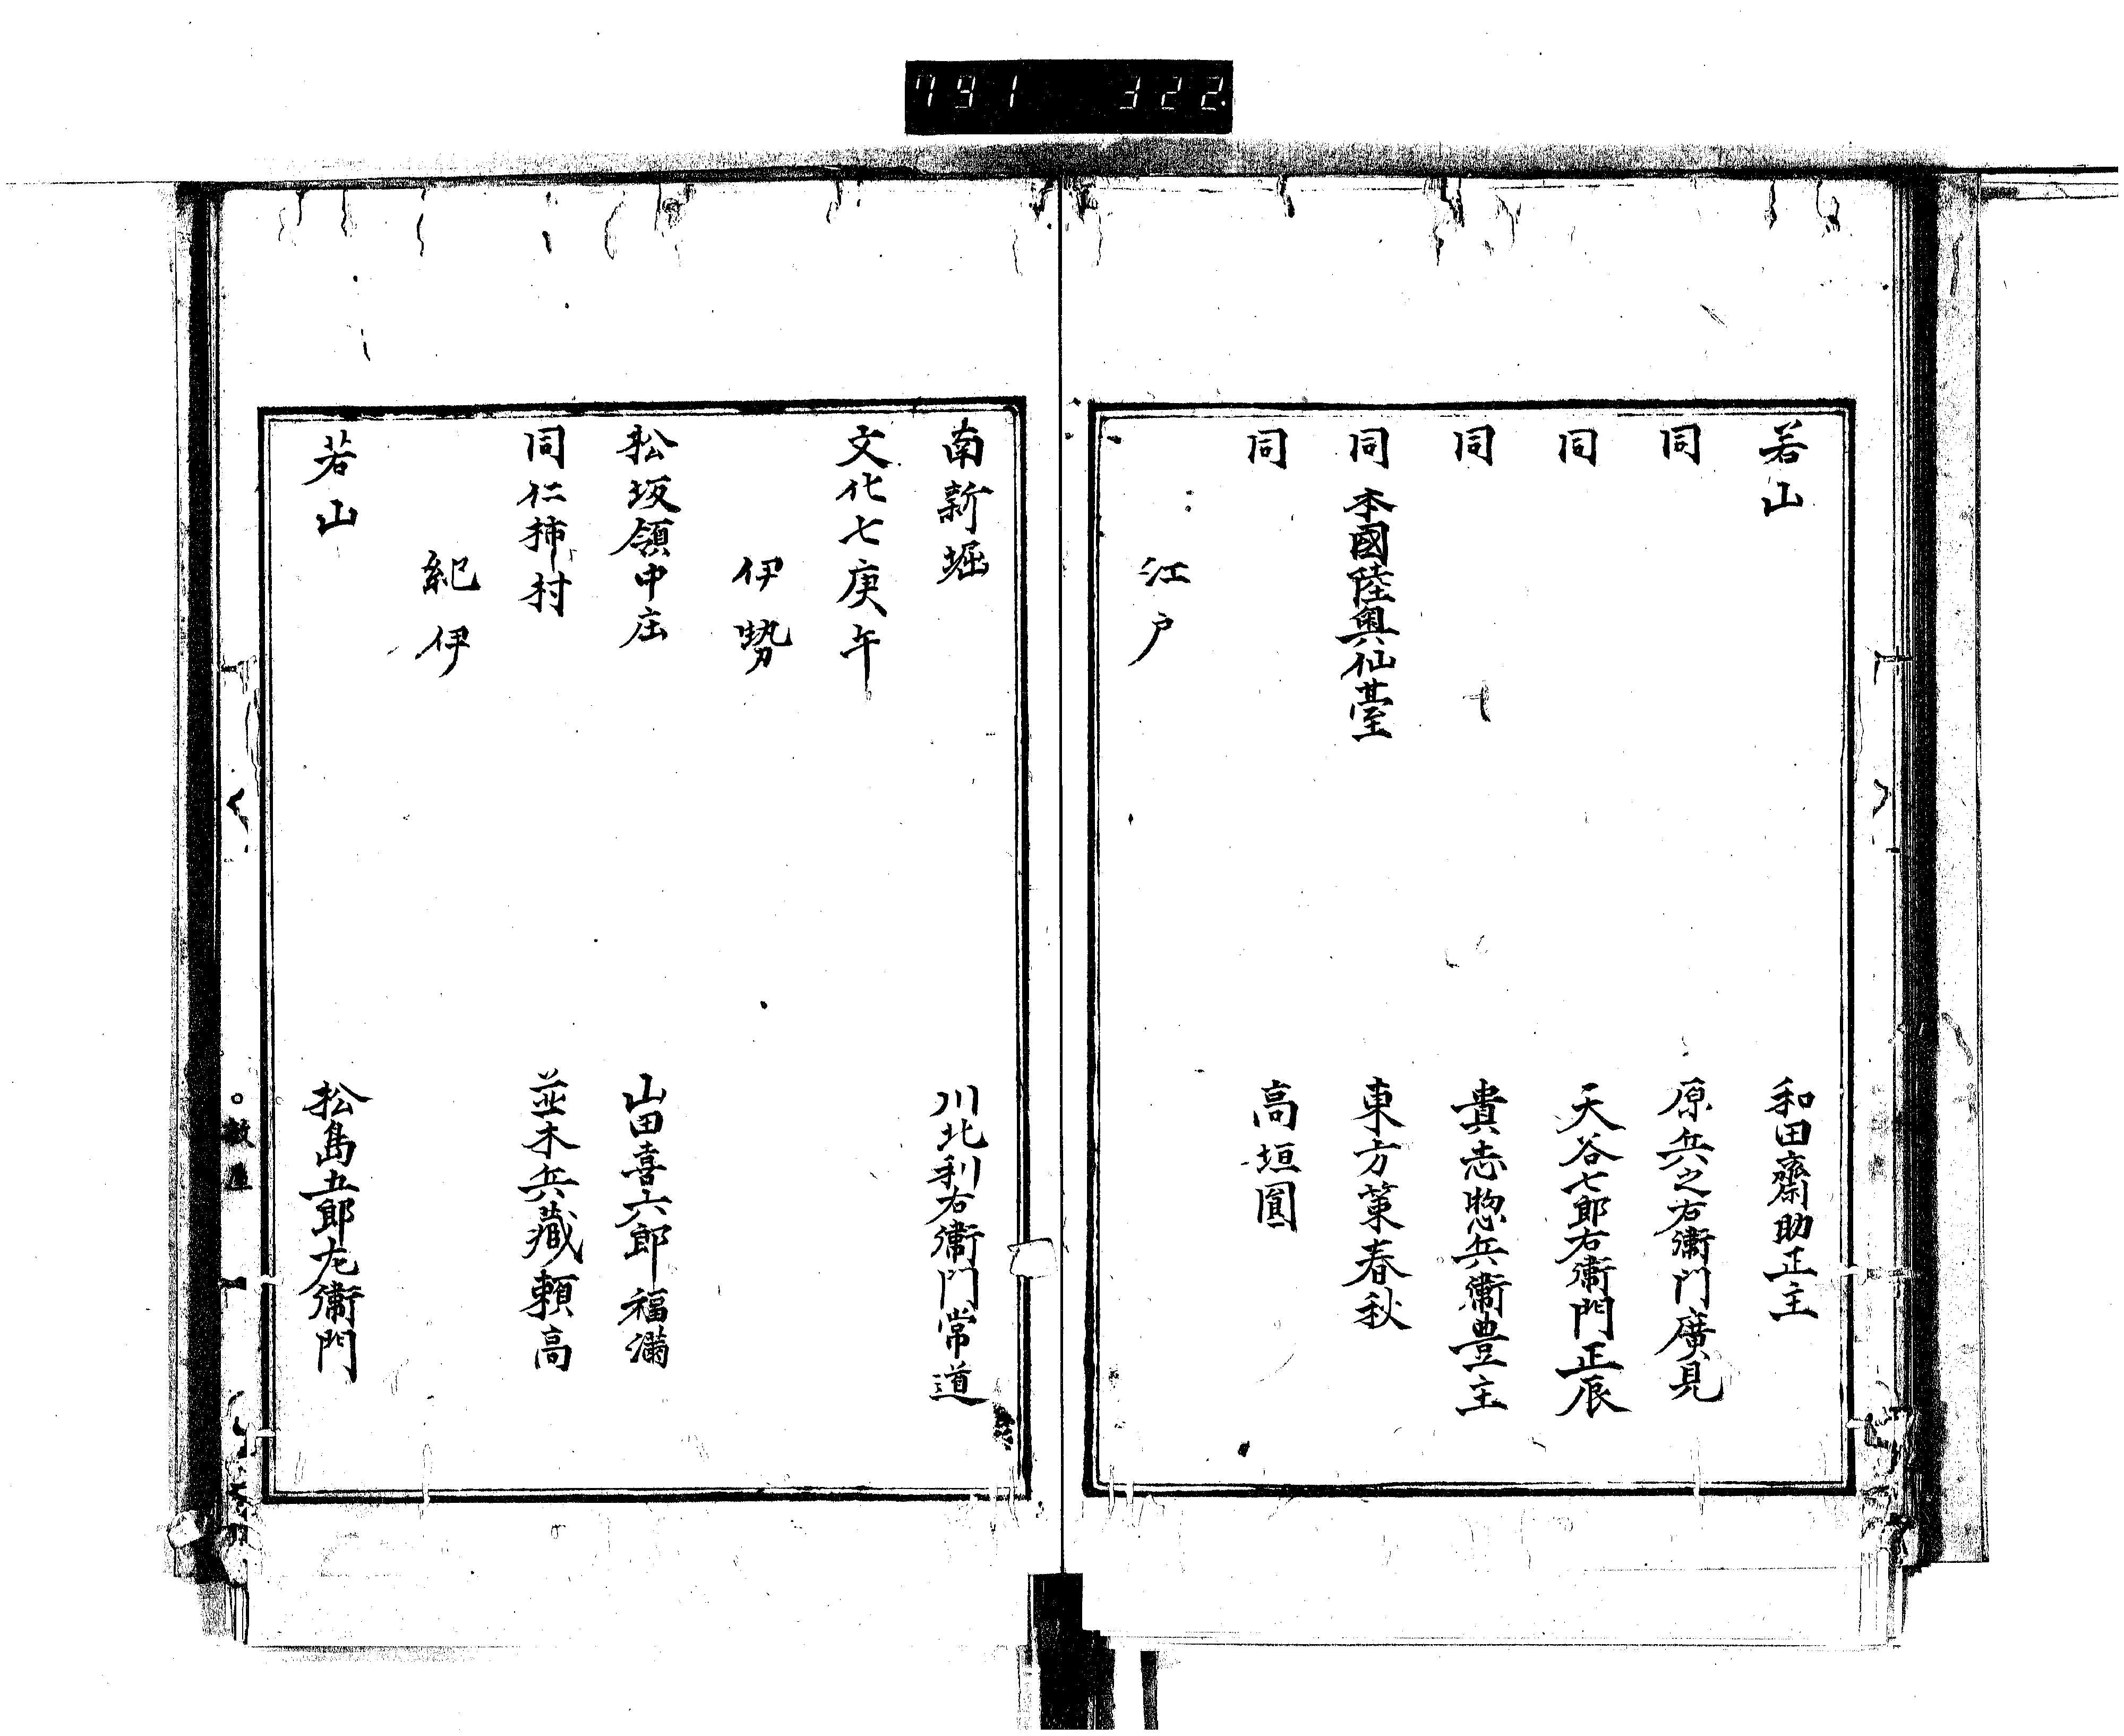 791 322
若山 和田齋助正主
同 原兵之右衛門廣見
同 天谷七郎右衛門正辰
同 貴志惣兵衛豊主
同 本國陸奥仙䑓 東方菓春秋
同 高垣圓
江戸
南新堀 川北利右衛門常道
文化七庚午
伊勢
松坂領中庄 山田喜六郎福満
同仁柿村 並木兵蔵頼高
紀伊
若山 松島五郎左衛門